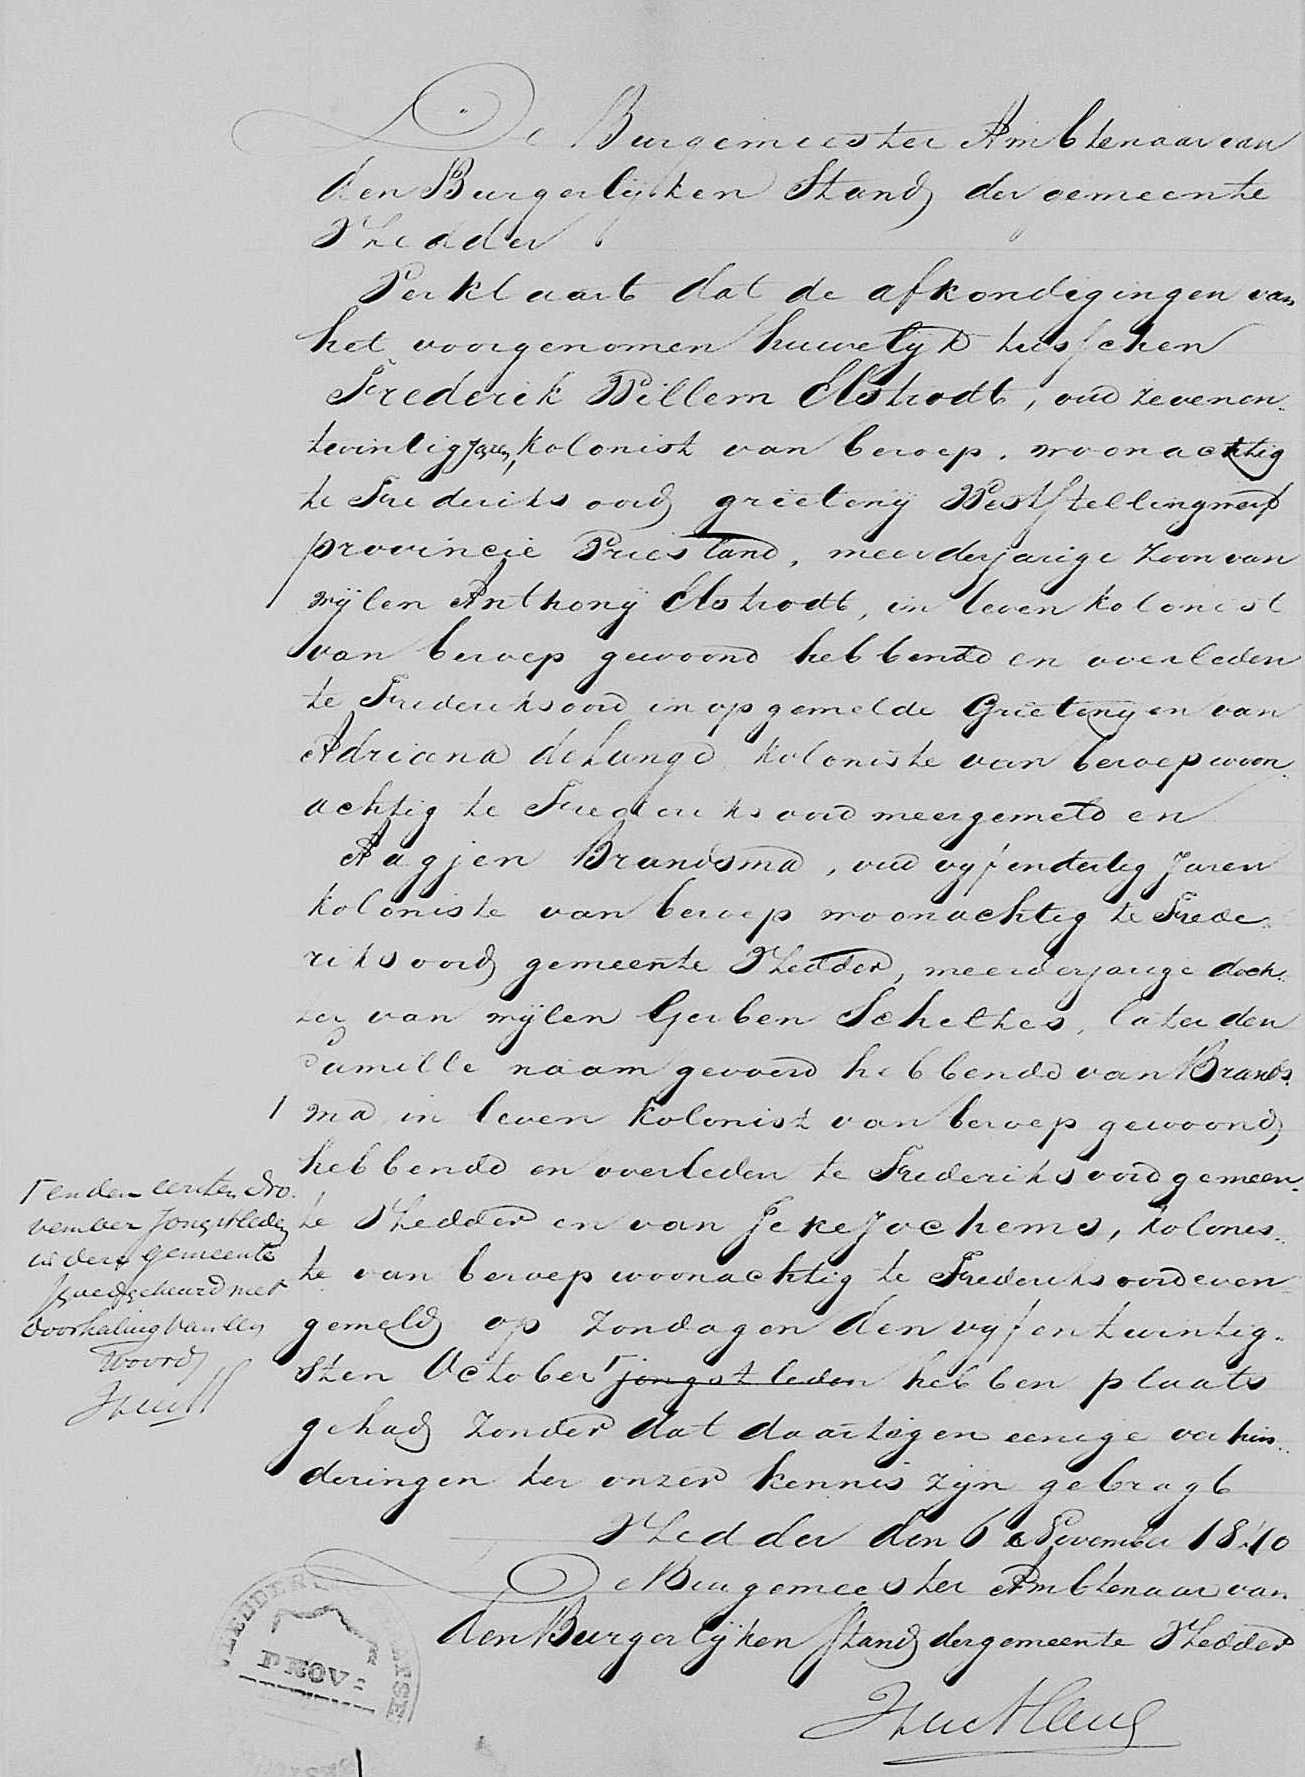 De Burgemeester Ambtenaar van
den Burgerlyken Stand, der gemeente
Vledder
Verklaart dat de afkondigingen van
het voorgenomen huwelyk tusschen
Frederik Willem Elstrodt, oud zevenen-
twintig Jaren, kolonist van beroep, woonachtig
te Frederiksoord grietenij Weststellingwerf
provincie Vriesland, meerderjarige zoon van
wijlen Anthonij Elstrodt, in leven kolonist
van beroep gewoond hebbende en overleden
te Frederiksoord in opgemelde Grietenij en van
Adriana de Lange koloniste van beroep woon-
achtig te Frederiksoord meergemeld en
Aagjen Brandsma, oud vyfendertig Jaren
koloniste van beroep woonachtig te Frede-
riksoord gemeente Vledder, meerderjarige doch-
ter van wijlen Gerben Scheltes, later den
familie naam gevoerd hebbende van Brands-
ma in leven kolonist van beroep gewoond
hebbende en overleden te Frederiksoord gemeen-
te Vledder en van Jeke Jochems, kolonis-
te van beroep woonachtig te Frederiksoord even
gemeld op zondagen den vyfentwintig-
sten October jongstleden hebben plaats
gehad zonder dat daartegen eenige verhin-
deringen ter onzer kennis zijn gebragt
Vledder den 6 November 1840
De Burgemeester Ambtenaar van
den Burgerlijken Stand der gemeente Vledder
en den eersten No-
vember Jongstleden
in dese gemeente
goedgekeurd met
doorhaling van een
woord
VLEDDER
PROV: